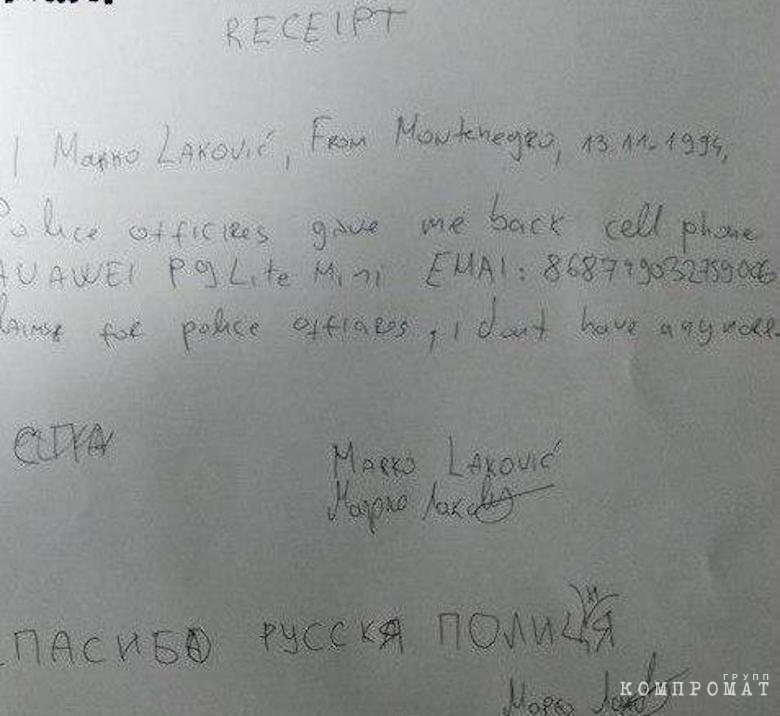 RECEIPT
I Marko Laković, From Montenegro, 13.11.1994,
Police officires gave me back cell phone
HUAWEI P9 Lite Mini EMAI:
for police officires, i dont have anymore
Marko Laković
Марко
СПАСИБО РУССКЯ ПОЛИЦИЯ
Марко
ГРУПП
КОМПРОМАТ